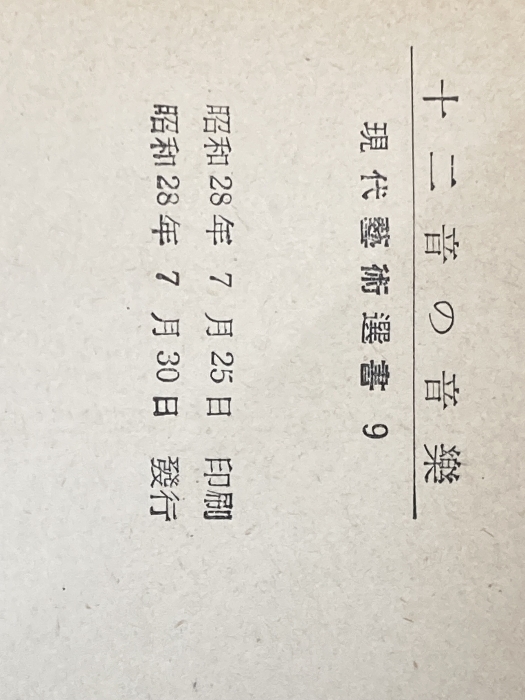 十二音の音樂
現代藝術選書 9
昭和28年 7 月25日 印刷
昭和28年 7 月30日 發行